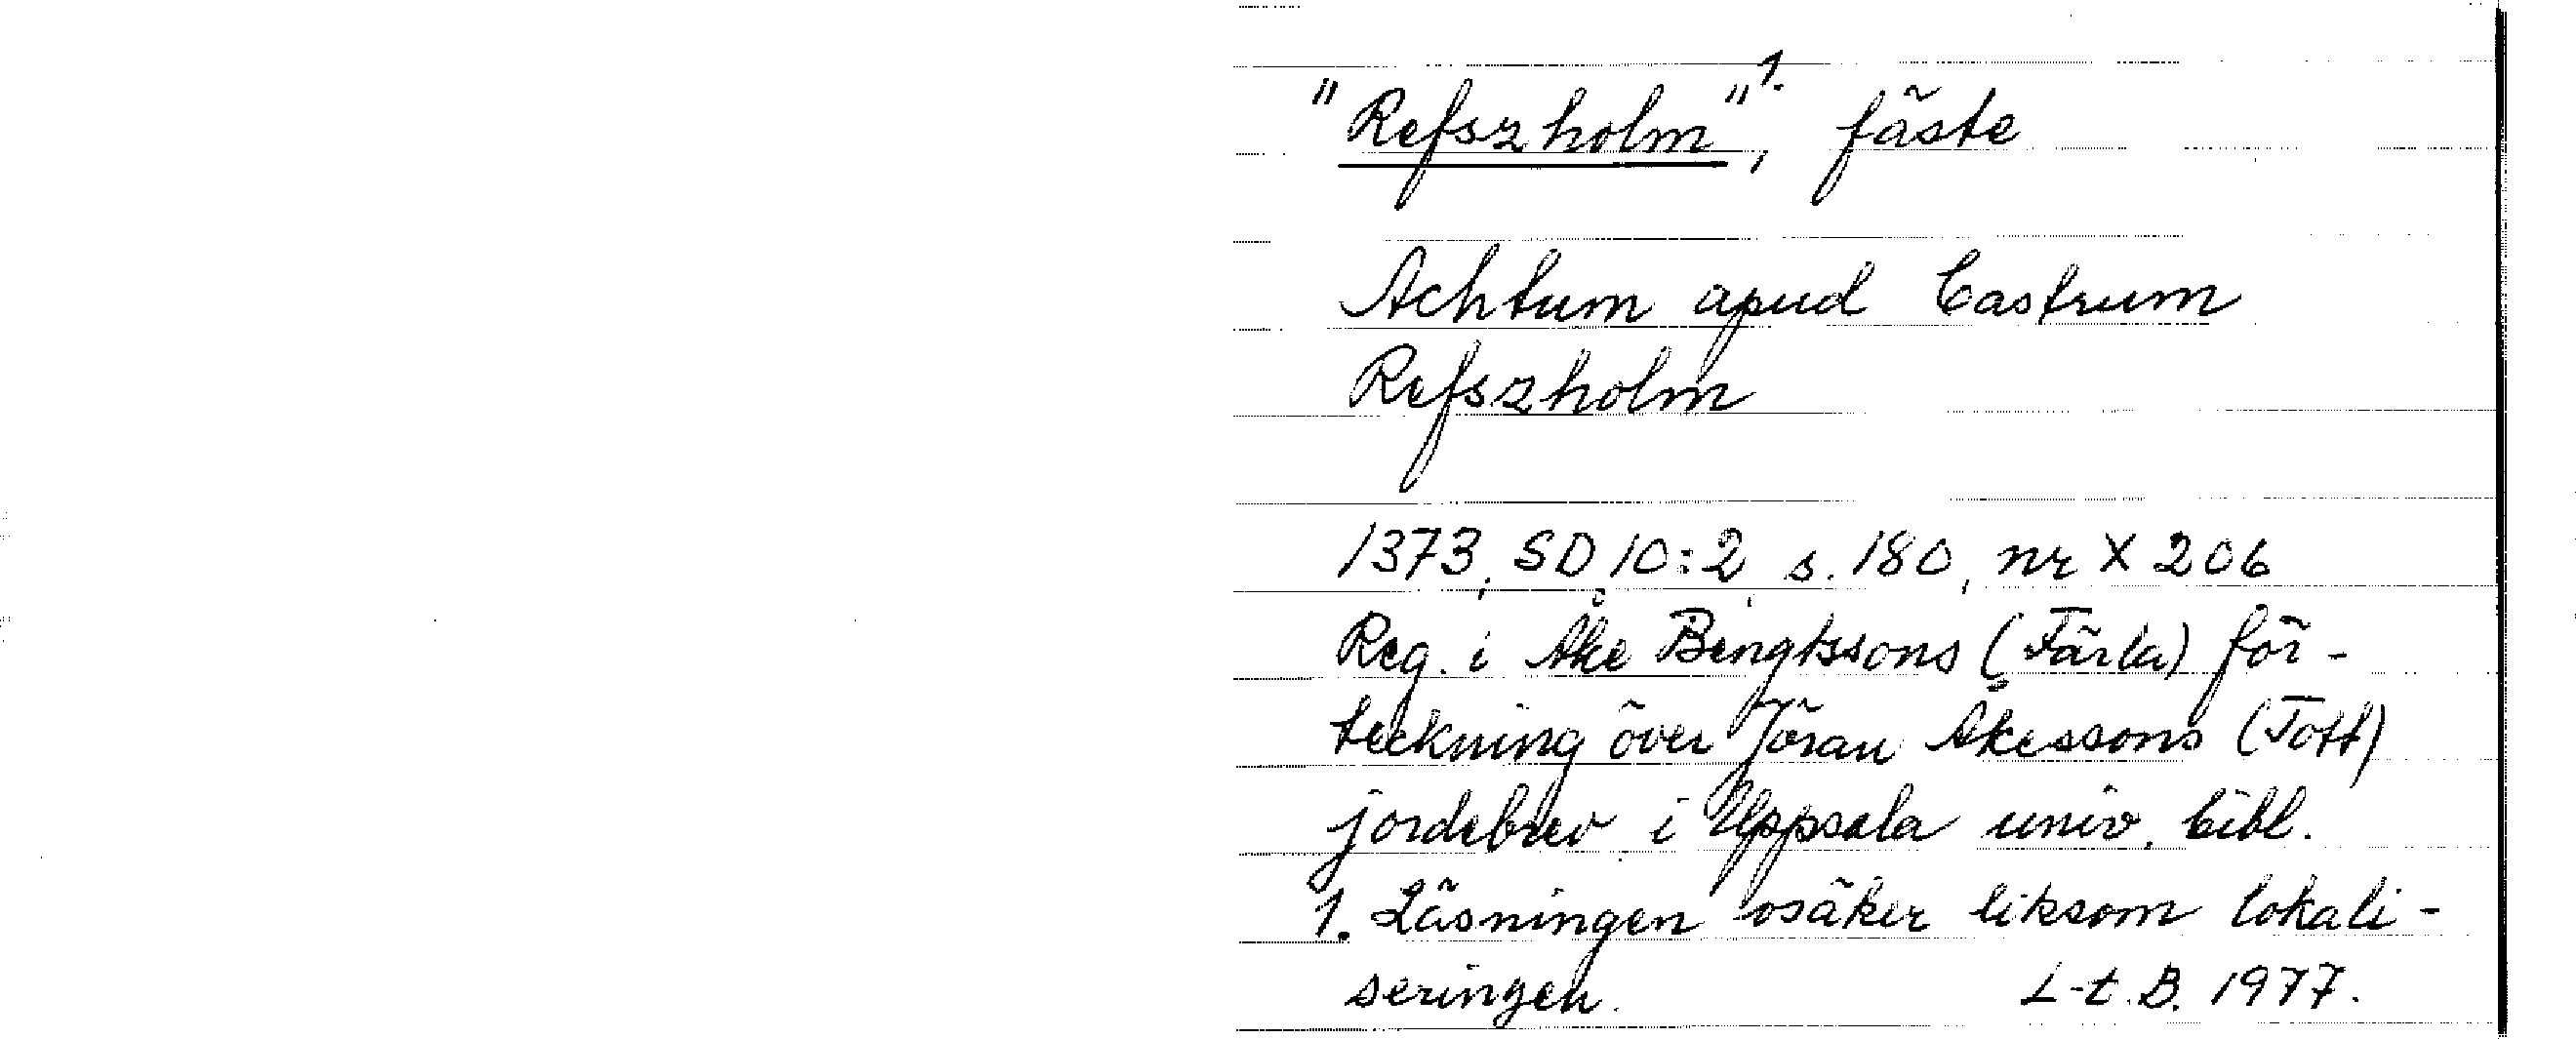 "Refszholm"1., fäste
Achtum apud Castrum
Refszholm
1373, SD 10:2, s. 180, nr X 206
Reg. i Åke Bengtssons (Färla) för-
teckning över Jöran Åkessons (Tott)
jordebrev i Uppsala univ. bibl.
1. Läsningen osäker liksom lokali-
seringen. L-t. B. 1977.